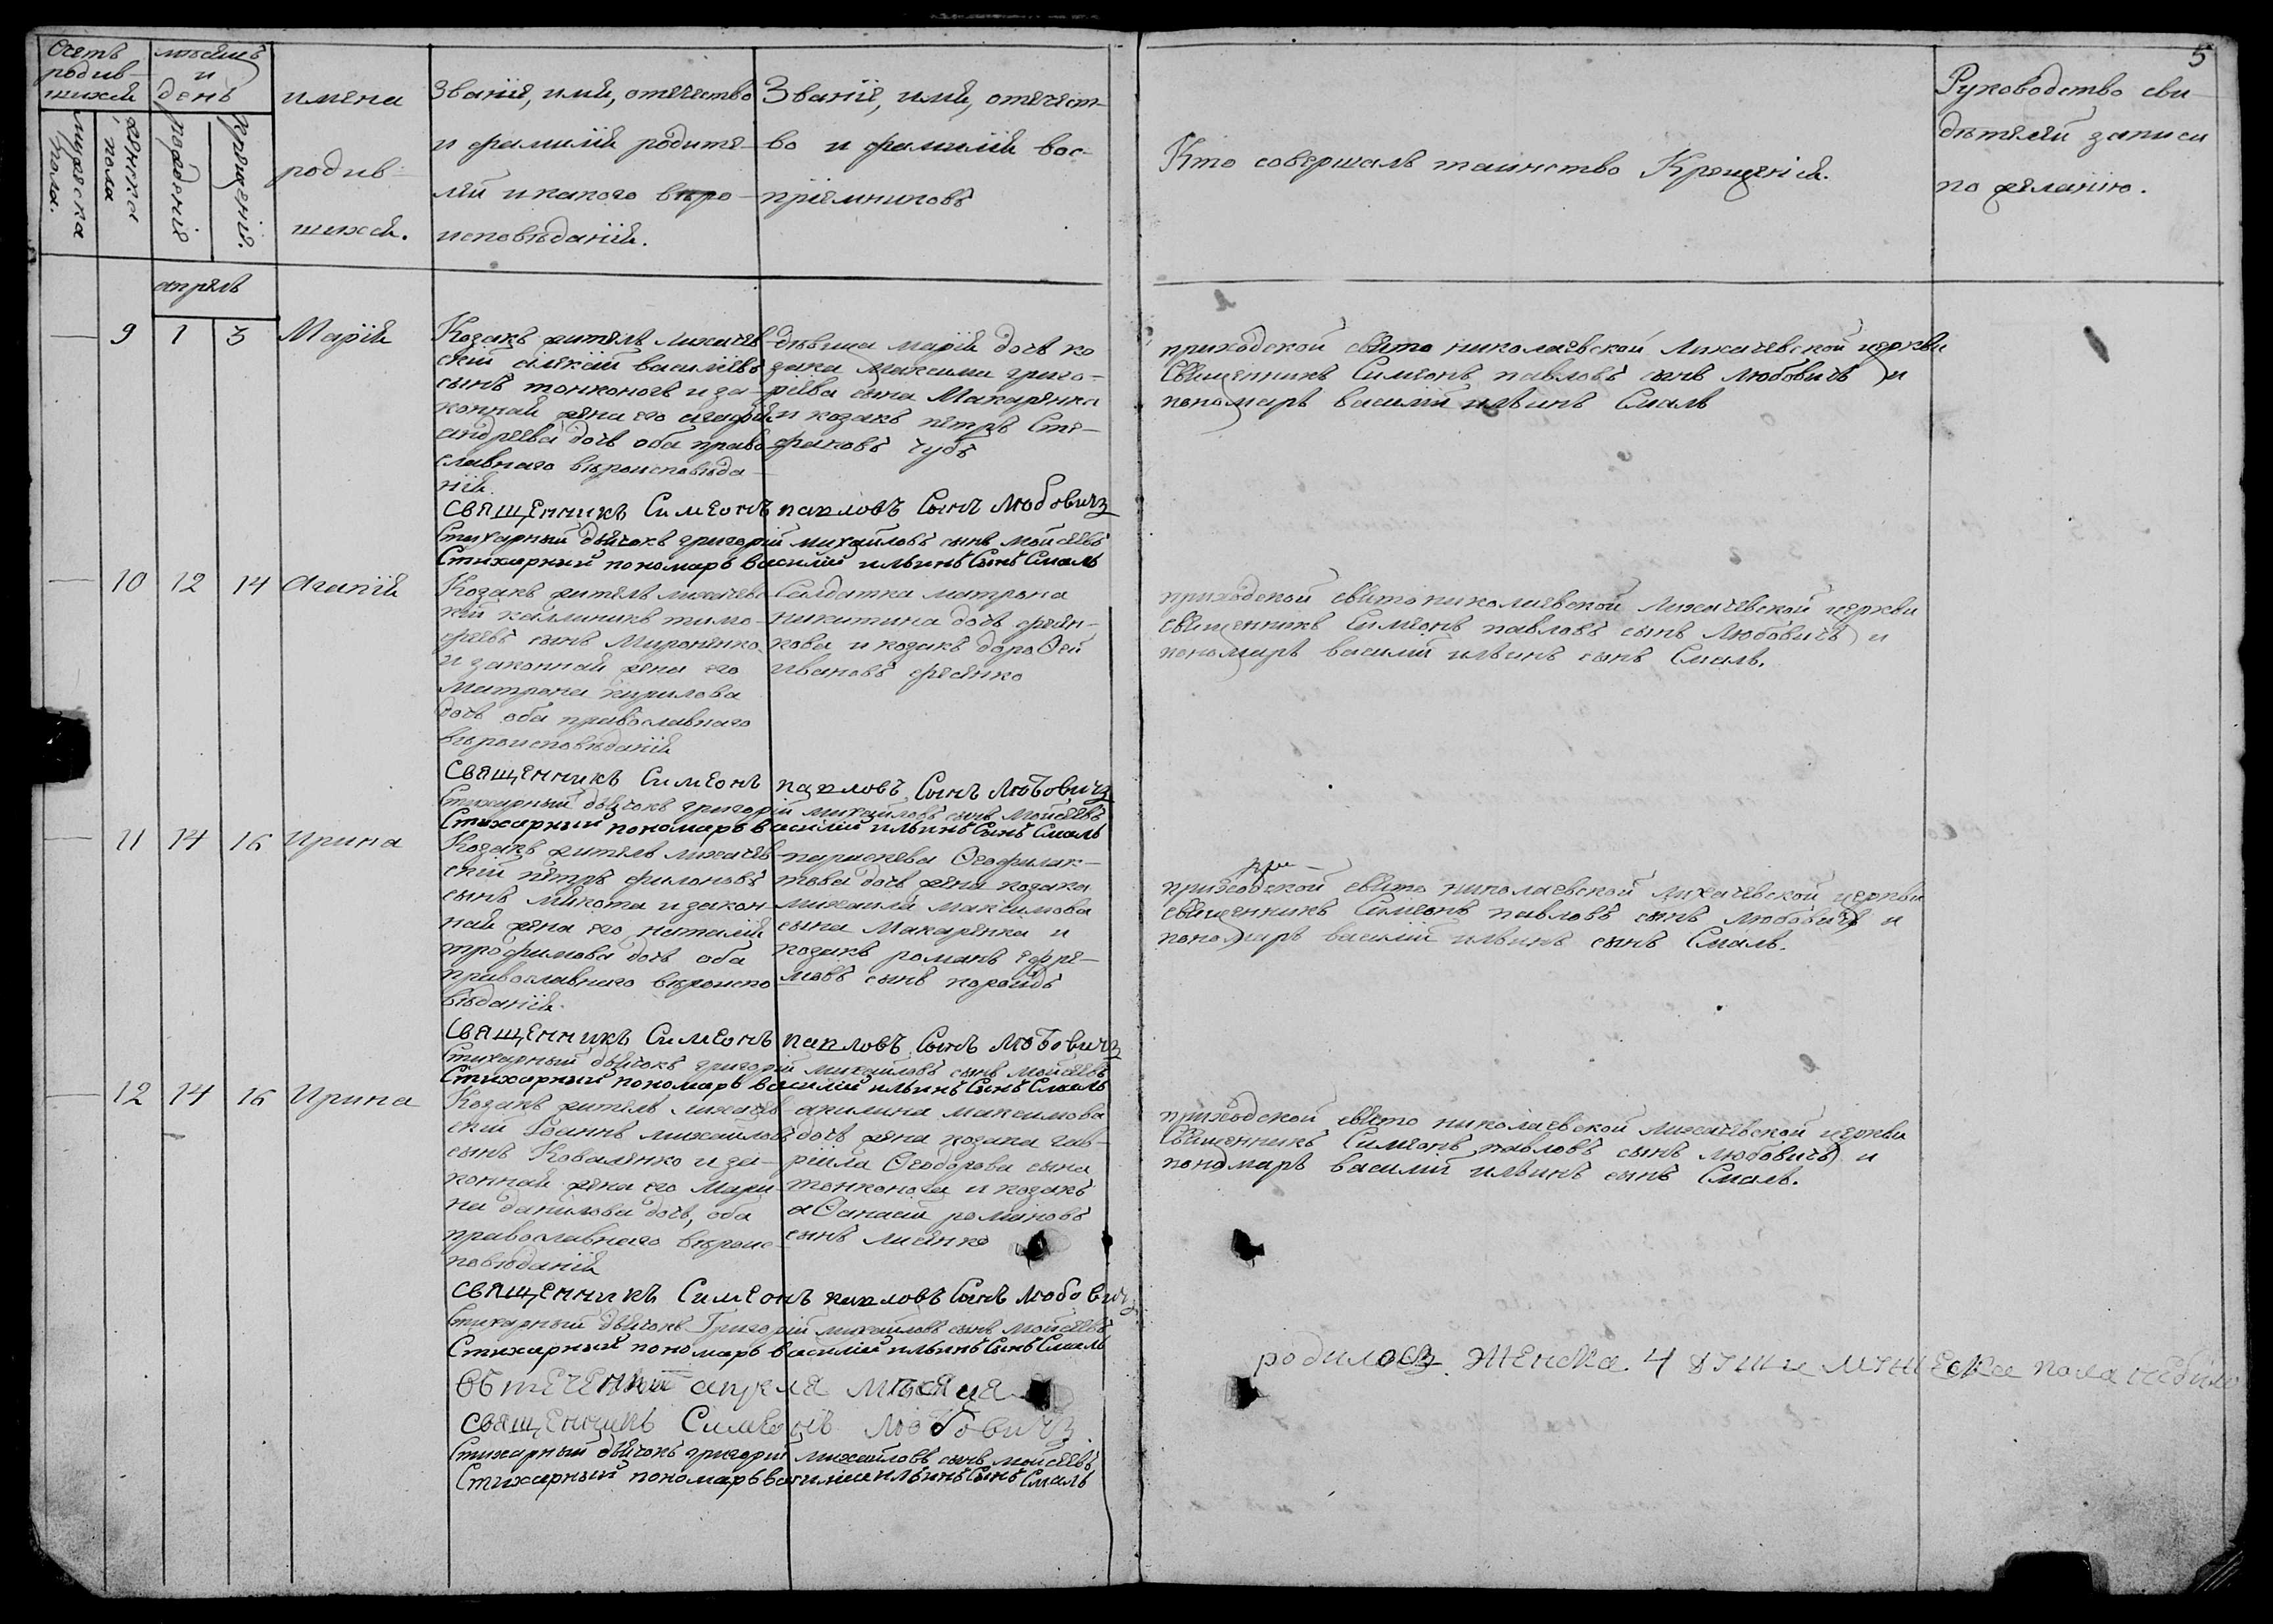 5
Счетъ
родив-
шихся
мѣсяцъ
и
день
мужеска
пола.
женска
пола
рожденія
крещенія.
имена
родив-
шихся.
Званіе, имя, отечество
и фамилія родите-
лей и какого вѣро-
исповѣданія.
Званіе, имя, отечест-
во и фамилія вос-
пріемниковъ
Кто совершалъ таинство Крещенія.
Руководство сви-
дѣтелей записи
по желанію.
апрѣль
9 1 3 Марія
Козакъ житель лихачев-
скій алексій василіевъ
сынъ тонконогъ и за-
конная жена его агафія
андреева дочь оба право-
славнаго вѣроисповѣда-
нія.
дѣвица марія дочь ко-
зака Максима григо-
ріева сына Макаренка
и козакъ петръ Сте-
фановъ чубъ
приходской свято николаевской Лихачевской церкви
Священникъ Симеонъ павловъ сынъ любовичъ и
пономарь василій ильинъ Смаль
священникъ Симеонъ павловъ Сынъ любовичъ
Стихарный дьячокъ григорій михайловъ сынъ мойсеевъ
Стихарный пономарь василій ильинъ Сынъ Смаль
10 12 14 Агапія
Козакъ житель лихачевс-
кій каллиникъ тимо-
феевъ сынъ Мироненко
и законная жена его
Матрона кирилова
дочь оба православнаго
вѣроисповѣданія
Салдатка матрона
никитина дочь фесен-
кова и козакъ дороѳей
ивановъ фесенко
приходской святониколаевской Лихачевской церкви
священникъ Симеонъ павловъ сынъ Любовичъ и
пономарь василій ильинъ сынъ Смаль.
священникъ Симеонъ павловъ Сынъ любовичъ
Стихарный дьячокъ григорій михайловъ сынъ мойсеевъ
Стихарный пономарь василій ильинъ Сынъ Смаль
11 14 16 Ирина
Козакъ житель лихачев-
скій петръ филоновъ
сынъ микота и закон-
ная жена его наталія
трофимова дочь оба
православнаго вѣроиспо-
вѣданія.
параскева Ѳеофилак-
това дочь жена козака
михаила максимова
сына Макаренка и
козакъ романъ ефре-
мовъ сынъ
при-
приходской свято николаевской лихачевской церкви
священникъ Симеонъ павловъ сынъ любовичъ и
пономарь василій ильинъ сынъ Смаль.
священникъ Симеонъ павловъ Сынъ любовичъ
Стихарный дьячокъ григорій михайловъ сынъ мойсеевъ
Стихарный пономарь василій ильинъ Сынъ Смаль
12 14 16 Ирина
Козакъ житель лихачев-
скій Іоаннъ михайловъ
сынъ Коваленко и за-
конная жена его Мари-
на данилова дочь, оба
православнаго вѣроис-
повѣданія
акилина максимова
дочь жена козака гав-
ріила Ѳеодорова сына
тонконога и козакъ
аѲанасій романовъ
сынъ лисенко
приходской свято николаевской лихачевской церкви
Священникъ Симеонъ павловъ сынъ любовичъ и
пономарь василій ильинъ сынъ Смаль.
священникъ Симеонъ павловъ Сынъ любовичъ
Стихарный дьячокъ Григорій михайловъ сынъ мойсеевъ
Стихарный пономарь василій ильинъ Сынъ Смаль
Въ теченіи апреля мѣсяца
родилось женска 4 пола
священникъ Симеонъ любовичъ
Стихарный дьячокъ григорій михайловъ сынъ мойсеевъ
Стихарный пономарь василій ильинъ Сынъ Смаль